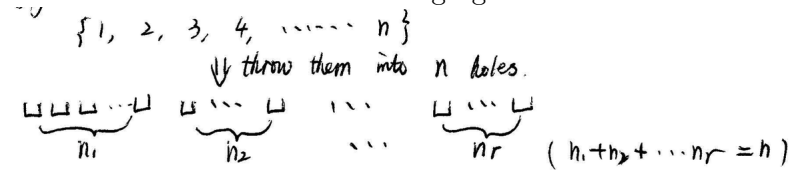 {1, 2, 3, 4, ...... n}
⇓ throw them into n holes.
⊔⊔⊔...⊔ ⊔...⊔ ... ⊔...⊔
n₁ n₂ ... nr (n₁+n₂+...nr=n)